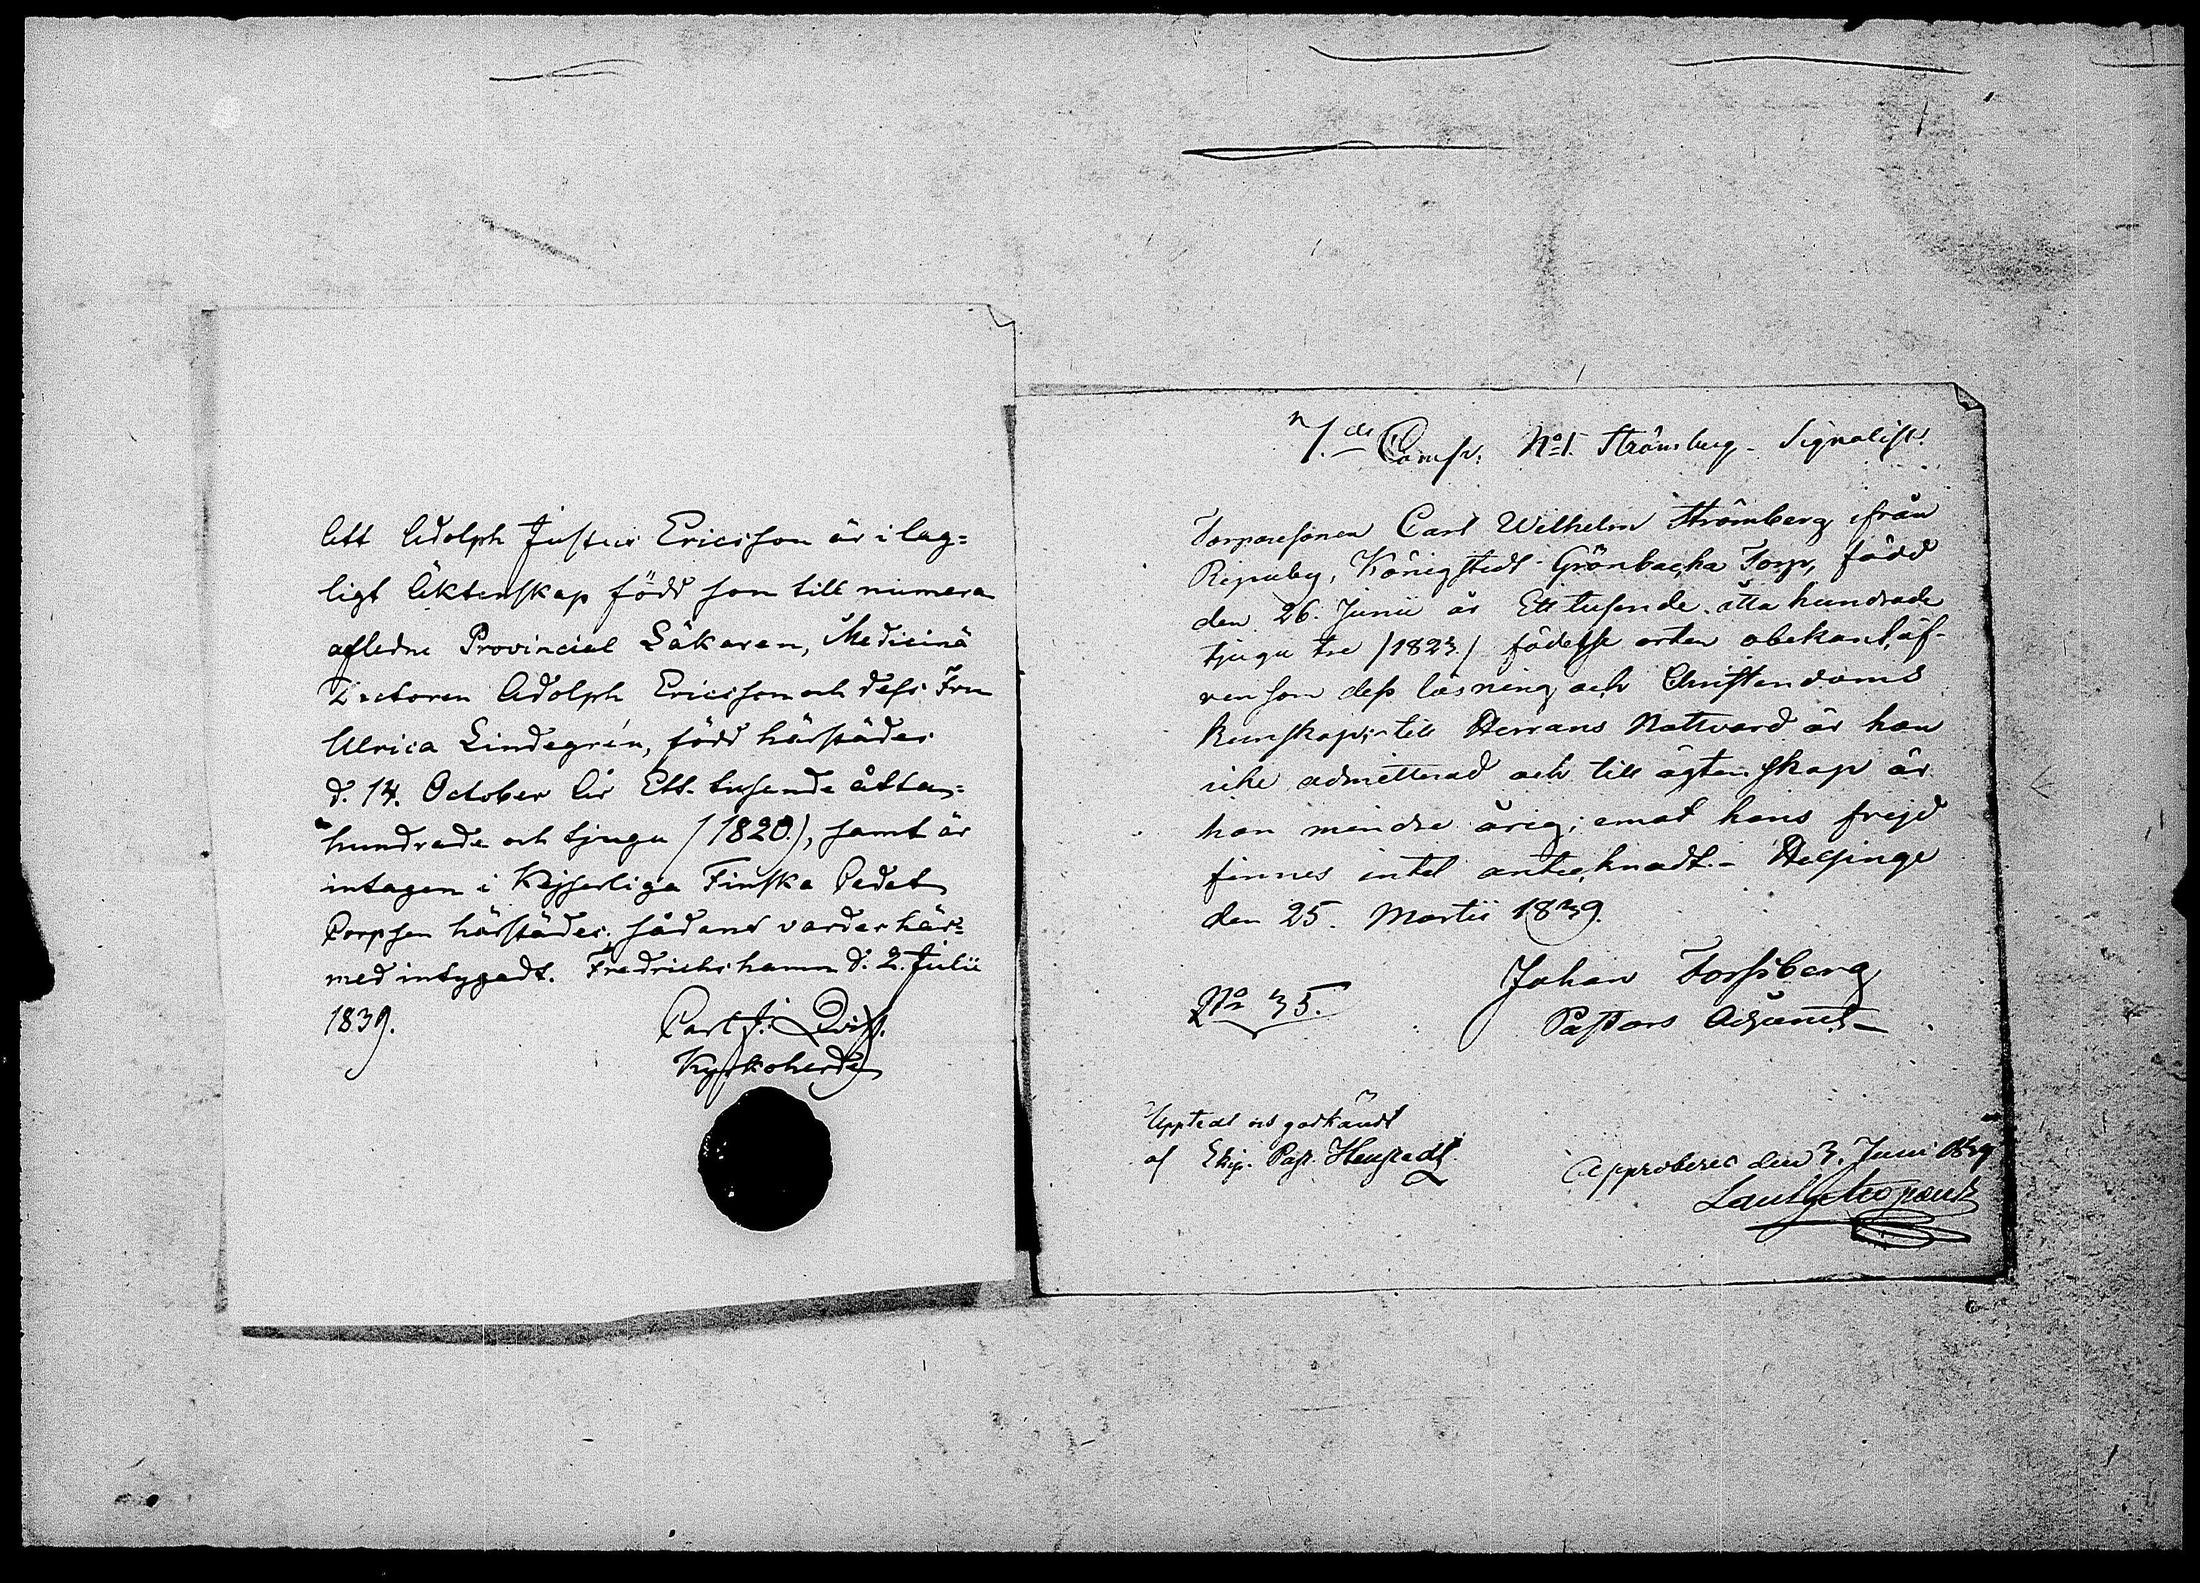 Att Adolph Justus Ericsson är i lag=
ligt Äktenskap född son till numera
afledne Provincial Läkaren, Medicinä
Doctoren Adolph Ericsson och dess Fru
Ulrica Lindegrén, född härstädes
d. 14. October År Ett tusende åtta=
hundrade och tjugu /1820./, samt är
intagen i Kejserliga Finska Cadet
Corpsen härstädes; sådant varder här=
med intygadt. Fredrichshamn d. 2. Julii
1839.
Carl J. Qvist.
Kyrkoherde
7.de Comp. No 1. Strömberg - Signalist.
Torparesonen Carl Wilhelm Strömberg ifrån
Ripuby, Königstedt Grönbacka Torp, född
den 26. Junii år Ett tusende åtta hundrade
tjugu tre /1823./ födelse orten obekant, äf-
ven som dess läsning och Christendoms
kunskap; till Herrans Nattvard är han
icke admitterad och till ägtenskap är
han mindre årig; emot hans frejd
finnes intet antecknadt. - Helsinge
den 25. Martii 1839.
No 35.
Johan Forssberg
Pastors Adjunct
Upptedt och godkändt
af Past.
Approberes den 3. Juni 1839